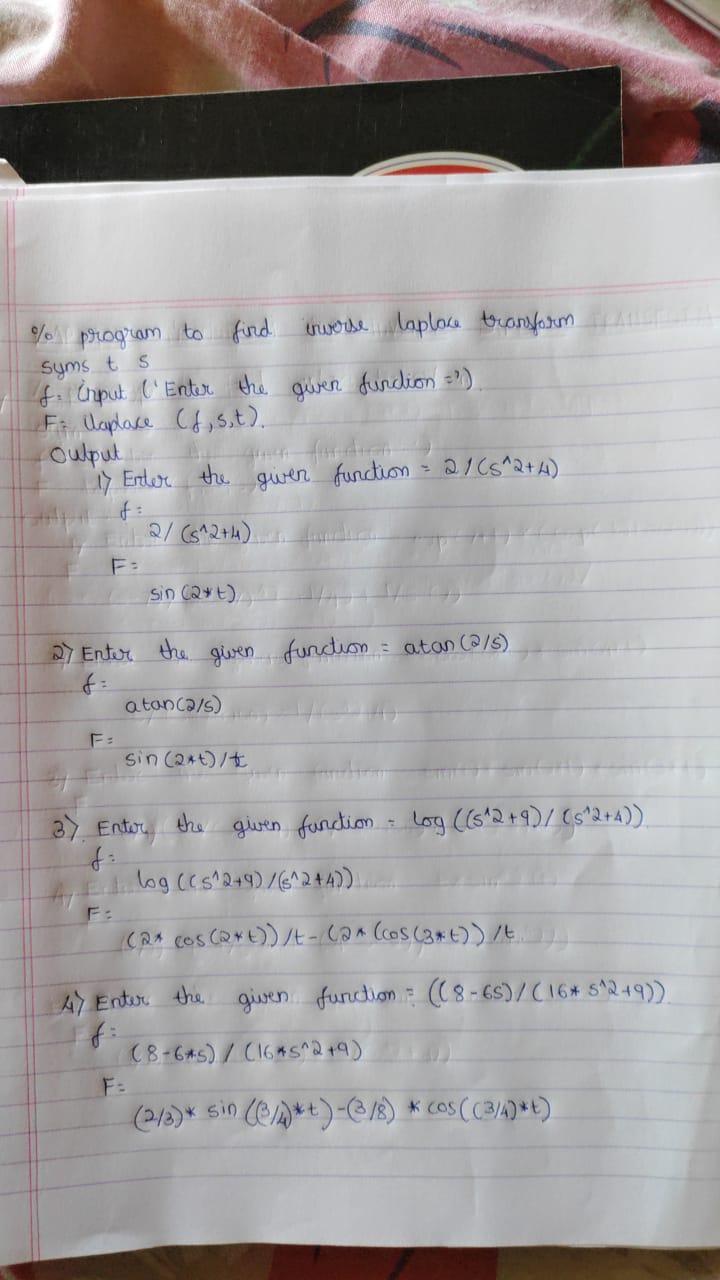 % program to find inverse laplace transform
syms t s
f= input ('Enter the given function =').
F= ilaplace (f,s,t).
Output
1) Enter the given function = 2/(s^2+4)
f=
2/(s^2+4)
F=
sin(2*t)
2) Enter the given function = atan(2/s)
f=
atan(2/s)
F=
sin(2*t)/t
3) Enter the given function = log((s^2+9)/(s^2+4))
f=
log((s^2+9)/(s^2+4))
F=
(2* cos(2*t))/t-(2*(cos(3*t))/t
4) Enter the given function = ((8-6s)/(16* s^2+9))
f=
(8-6*s)/(16*s^2+9)
F=
(2/3)* sin((3/4)*t)-(3/8) * cos((3/4)*t)